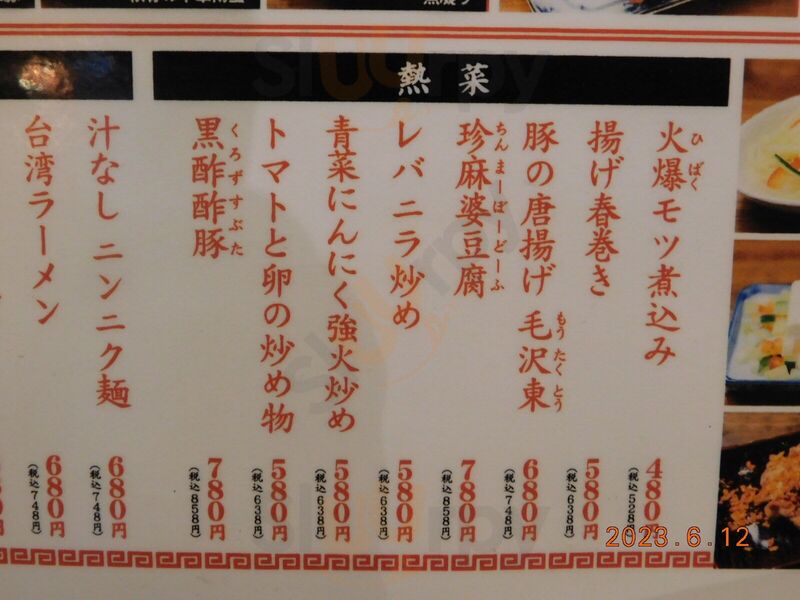 熱菜
火爆モツ煮込み
ひばく
480円
(税込528円)
揚げ春巻き
580円
(税込638円)
豚の唐揚げ 毛沢東
もうたくとう
680円
(税込748円)
珍麻婆豆腐
ちんまーぼーどーふ
780円
(税込858円)
レバニラ炒め
580円
(税込638円)
青菜にんにく強火炒め
580円
(税込638円)
トマトと卵の炒め物
580円
(税込638円)
黒酢酢豚
くろずすぶた
780円
(税込858円)
汁なしニンニク麺
680円
(税込748円)
台湾ラーメン
680円
(税込748円)
2023.6.12